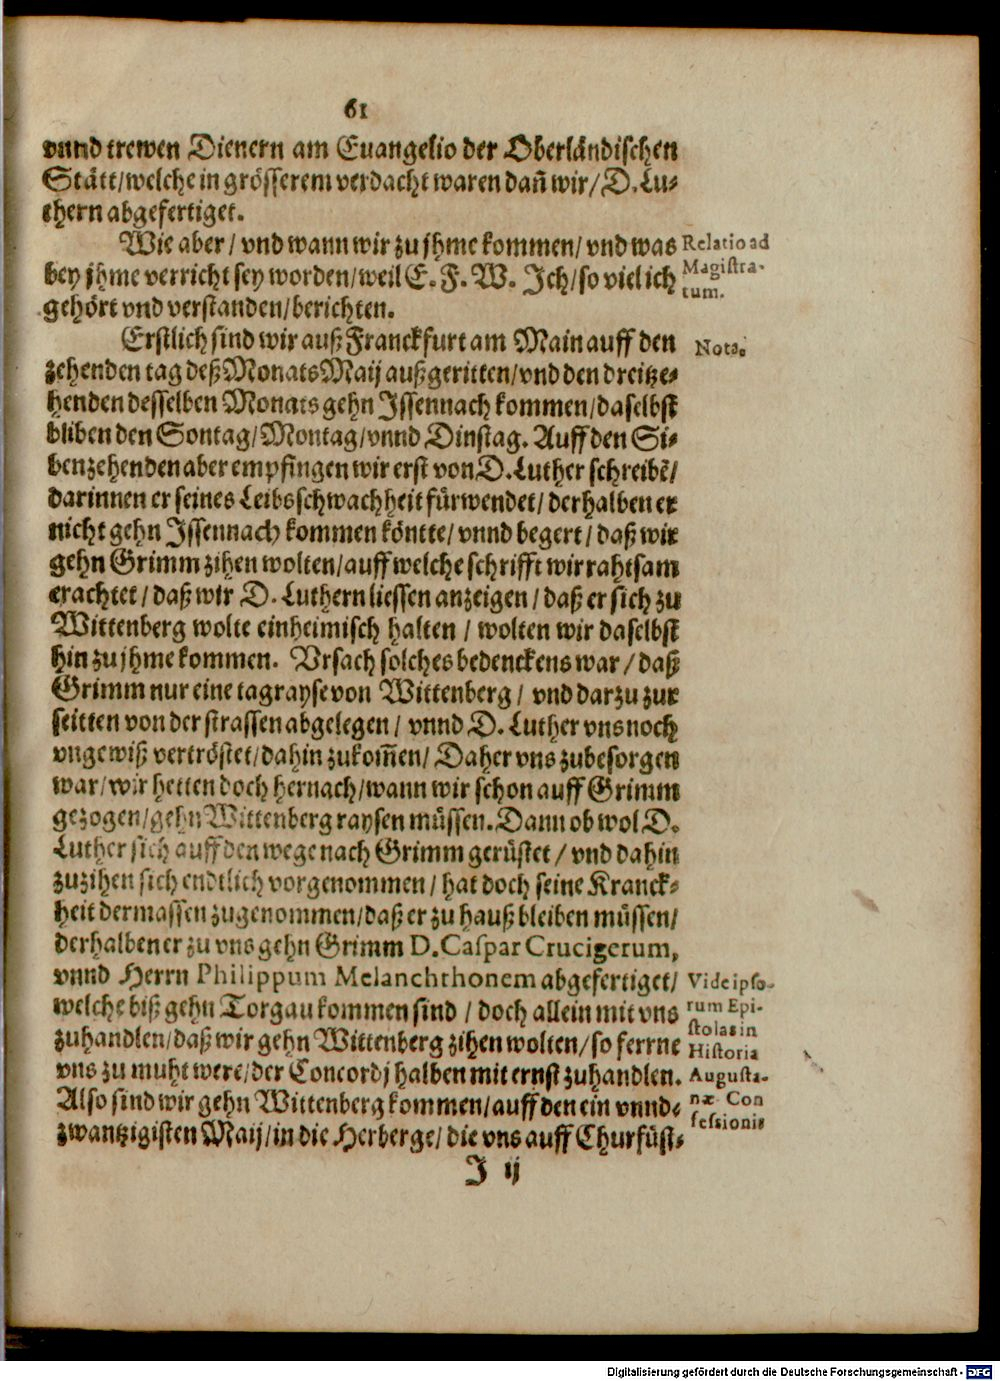 61
vnnd trewen Dienern am Euangelio der Oberländischen
Stätt/welche in grösserem verdacht waren dañ wir/D.Lu-
thern abgefertiget.
Wie aber/ vnd wann wir zu jhme kommen/ vnd was
bey jhme verricht sey worden/weil E. F. W. Ich/so viel ich
gehört vnd verstanden/berichten.
Relatio ad
Magistra-
tum.
Erstlich sind wir auß Franckfurt am Main auff den
zehenden tag deß Monats Maij außgeritten/vnd den dreitze-
henden desselben Monats gehn Issennach kommen/daselbst
bliben den Sontag/Montag/vnnd Dinstag. Auff den Si-
benzehenden aber empfingen wir erst von D.Luther schreibẽ/
darinnen er seines Leibsschwachheit fürwendet/ derhalben er
nicht gehn Issennach kommen köntte/ vnnd begert/ daß wir
gehn Grimm zihen wolten/auff welche schrifft wir rahtsam
erachtet/ daß wir D. Luthern liessen anzeigen/ daß er sich zu
Wittenberg wolte einheimisch halten/ wolten wir daselbst
hin zu jhme kommen. Vrsach solches bedenckens war/ daß
Grimm nur eine tagrayse von Wittenberg/ vnd darzu zur
seitten von der strassen abgelegen/ vnnd D. Luther vns noch
vngewiß vertröstet/dahin zukom̄en/ Daher vns zubesorgen
war/wir hetten doch hernach/wann wir schon auff Grimm
gezogen/gehn Wittenberg raysen müssen. Dann ob wol D.
Luther sich auff den wege nach Grimm gerüstet/ vnd dahin
zuzihen sich endtlich vorgenommen/ hat doch seine Kranck-
heit dermassen zugenommen/daß er zu hauß bleiben müssen/
derhalben er zu vns gehn Grimm D. Caspar Crucigerum,
vnnd Herrn Philippum Melanchthonem abgefertiget/
welche biß gehn Torgau kommen sind/ doch allein mit vns
zuhandlen/daß wir gehn Wittenberg zihen wolten/so ferrne
vns zu muht were/der Concordj halben mit ernst zuhandlen.
Also sind wir gehn Wittenberg kommen/auff den ein vnnd-
zwantzigisten Maij/in die Herberge/ die vns auff Churfüst-
Nota.
Vide ipso-
rum Epi-
stolas in
Historia
Augusta-
næ Con
fessionis
J ij
Digitalisierung gefördert durch die Deutsche Forschungsgemeinschaft - DFG